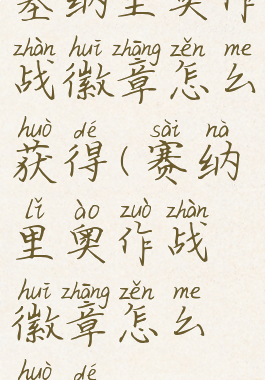 塞纳里奥作
zhàn huī zhāng zěn me
战徽章怎么
huò dé sài nà
获得(赛纳
lǐ ào zuò zhàn
里奥作战
huī zhāng zěn me
徽章怎么
huò dé